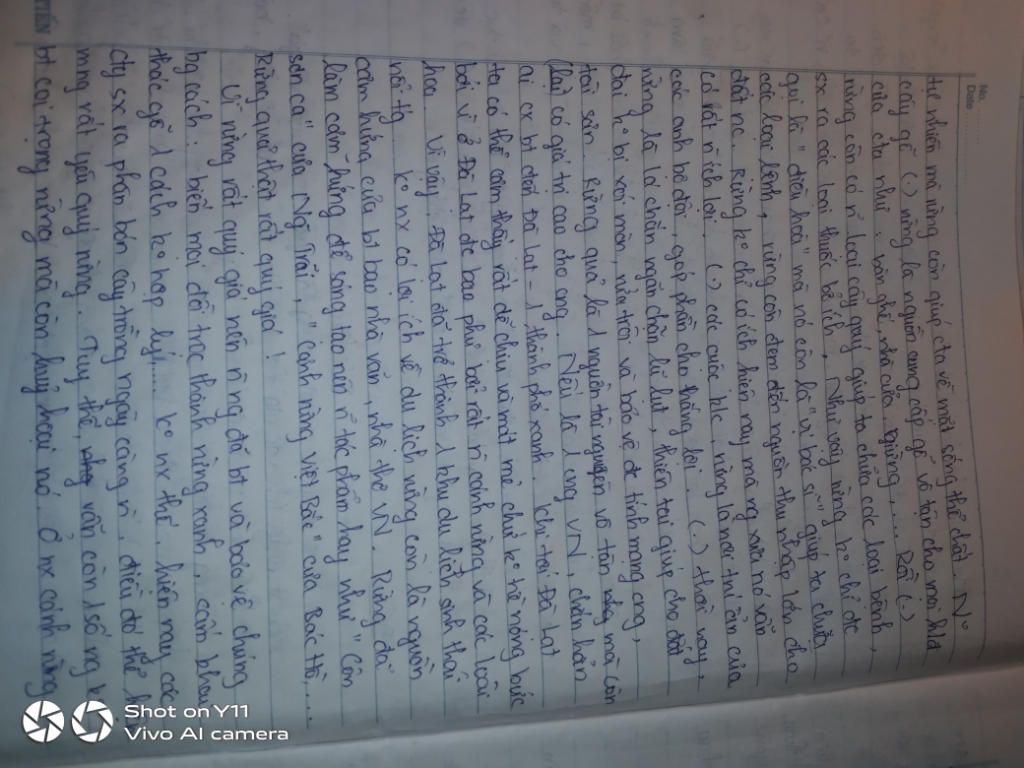 No.
Date
tự nhiên mà rừng còn giúp cta về mặt sống thể chất. N°
cây gỗ (.) rừng là nguồn cung cấp gỗ vô tận cho mọi
của cta như: bàn ghế, nhà cửa, Rồi (.)
rừng còn có n̄ loại cây quý giúp ta chữa các loại bệnh,
sx ra các loại thuốc bổ ích. Như vậy rừng k° chỉ đc
gọi là "điều hoà" mà nó còn là "vị bác sĩ" giúp ta chữa
các loại bệnh, rừng còn đem đến nguồn thu nhập lớn cho
đất nc. Rừng k° chỉ có ích hiện nay mà ng xưa nó vẫn
có rất n̄ ích lợi. (.) các cuộc k/c, rừng là nơi trú ẩn của
các anh bộ đội, góp phần cho thắng lợi. (.) thời nay,
rừng là lá chắn ngăn chặn lũ lụt, thiên tai giúp cho đất
đai k° bị xói mòn, rửa trôi và bảo vệ đc tính mạng cng,
tài sản. Rừng quả là 1 nguồn tài nguyên vô tận mà còn
có giá trị cao cho cng. Nếu là 1 cng VN, chắc hẳn
ai cx bt đến Đà Lạt - 1 thành phố xanh. Khi tới Đà Lạt
ta có thể cảm thấy rất dễ chịu và mát mẻ chứ k° hề nóng bức
bởi vì ở Đà Lạt đc bao phủ bởi rất n̄ cánh rừng và các loài
hoa. Vì vậy, Đà Lạt đã trở thành 1 khu du lịch sinh thái
nổi tg. k° nx có lợi ích về du lịch rừng còn là nguồn
cảm hứng của bt bao nhà văn, nhà thơ VN. Rừng đã
làm cảm hứng để sáng tạo nên n̄ tác phẩm hay như "Côn
sơn ca" của Ng Trãi, "cảnh rừng Việt Bắc" của Bác Hồ,...
Rừng quả thật rất quý giá!
Vì rừng rất quý giá nên n̄ ng đã bt và bảo vệ chúng
bg cách: biến mọi đồi trọc thành rừng xanh, cấm
thác gỗ 1 cách k° hợp lý... k° nx thế, hiện nay các
cty sx ra phân bón cây trồng ngày càng n̄, điều đó thể
mng rất yêu quý rừng. Tuy thế, vẫn còn 1 số ng k°
bt coi trọng rừng mà còn huỷ hoại nó. Ở nx cánh rừng
Shot on Y11
Vivo AI camera